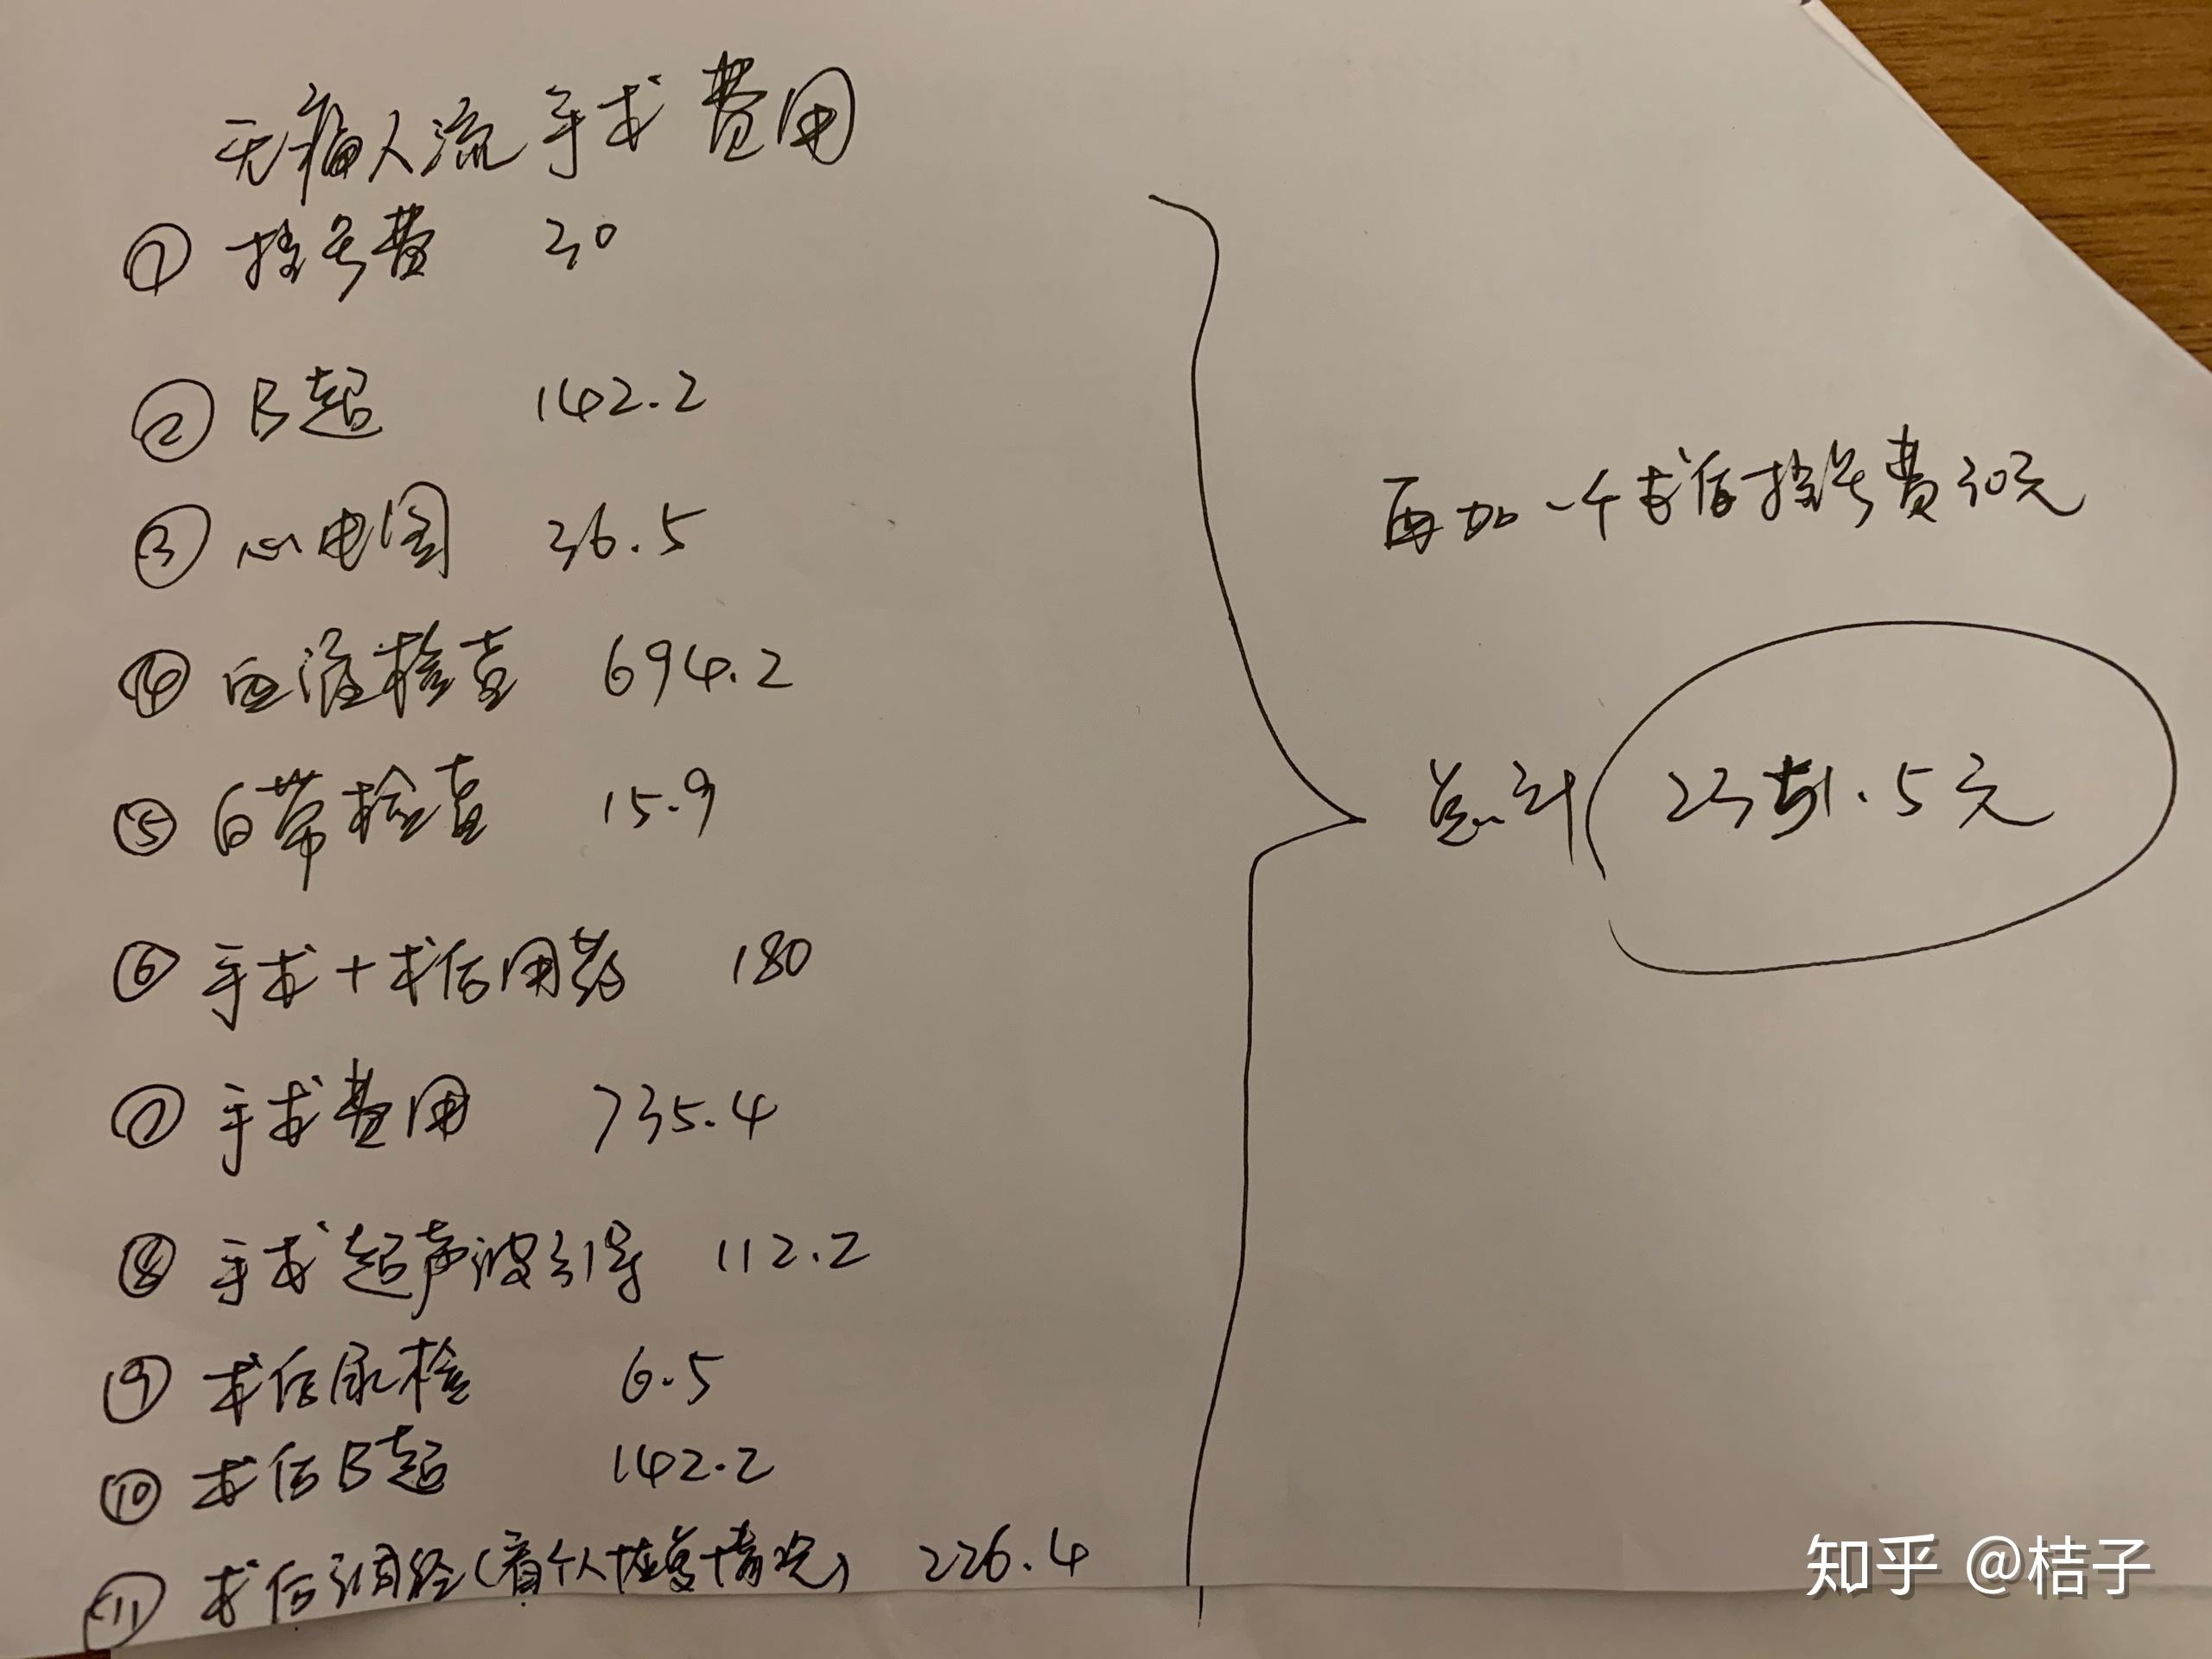 无痛人流手术费用
① 挂号费 30
② B超 142.2
③ 心电图 36.5
④ 血液检查 694.2
⑤ 白带检查 15.9
⑥ 手术+术后用药 180
⑦ 手术费用 735.4
⑧ 手术超声波引导 112.2
⑨ 术后尿检 6.5
⑩ 术后B超 142.2
⑪ 术后调经(看个人恢复情况) 226.4
再加一个术后挂号费30元
总计 2351.5元
知乎 @桔子